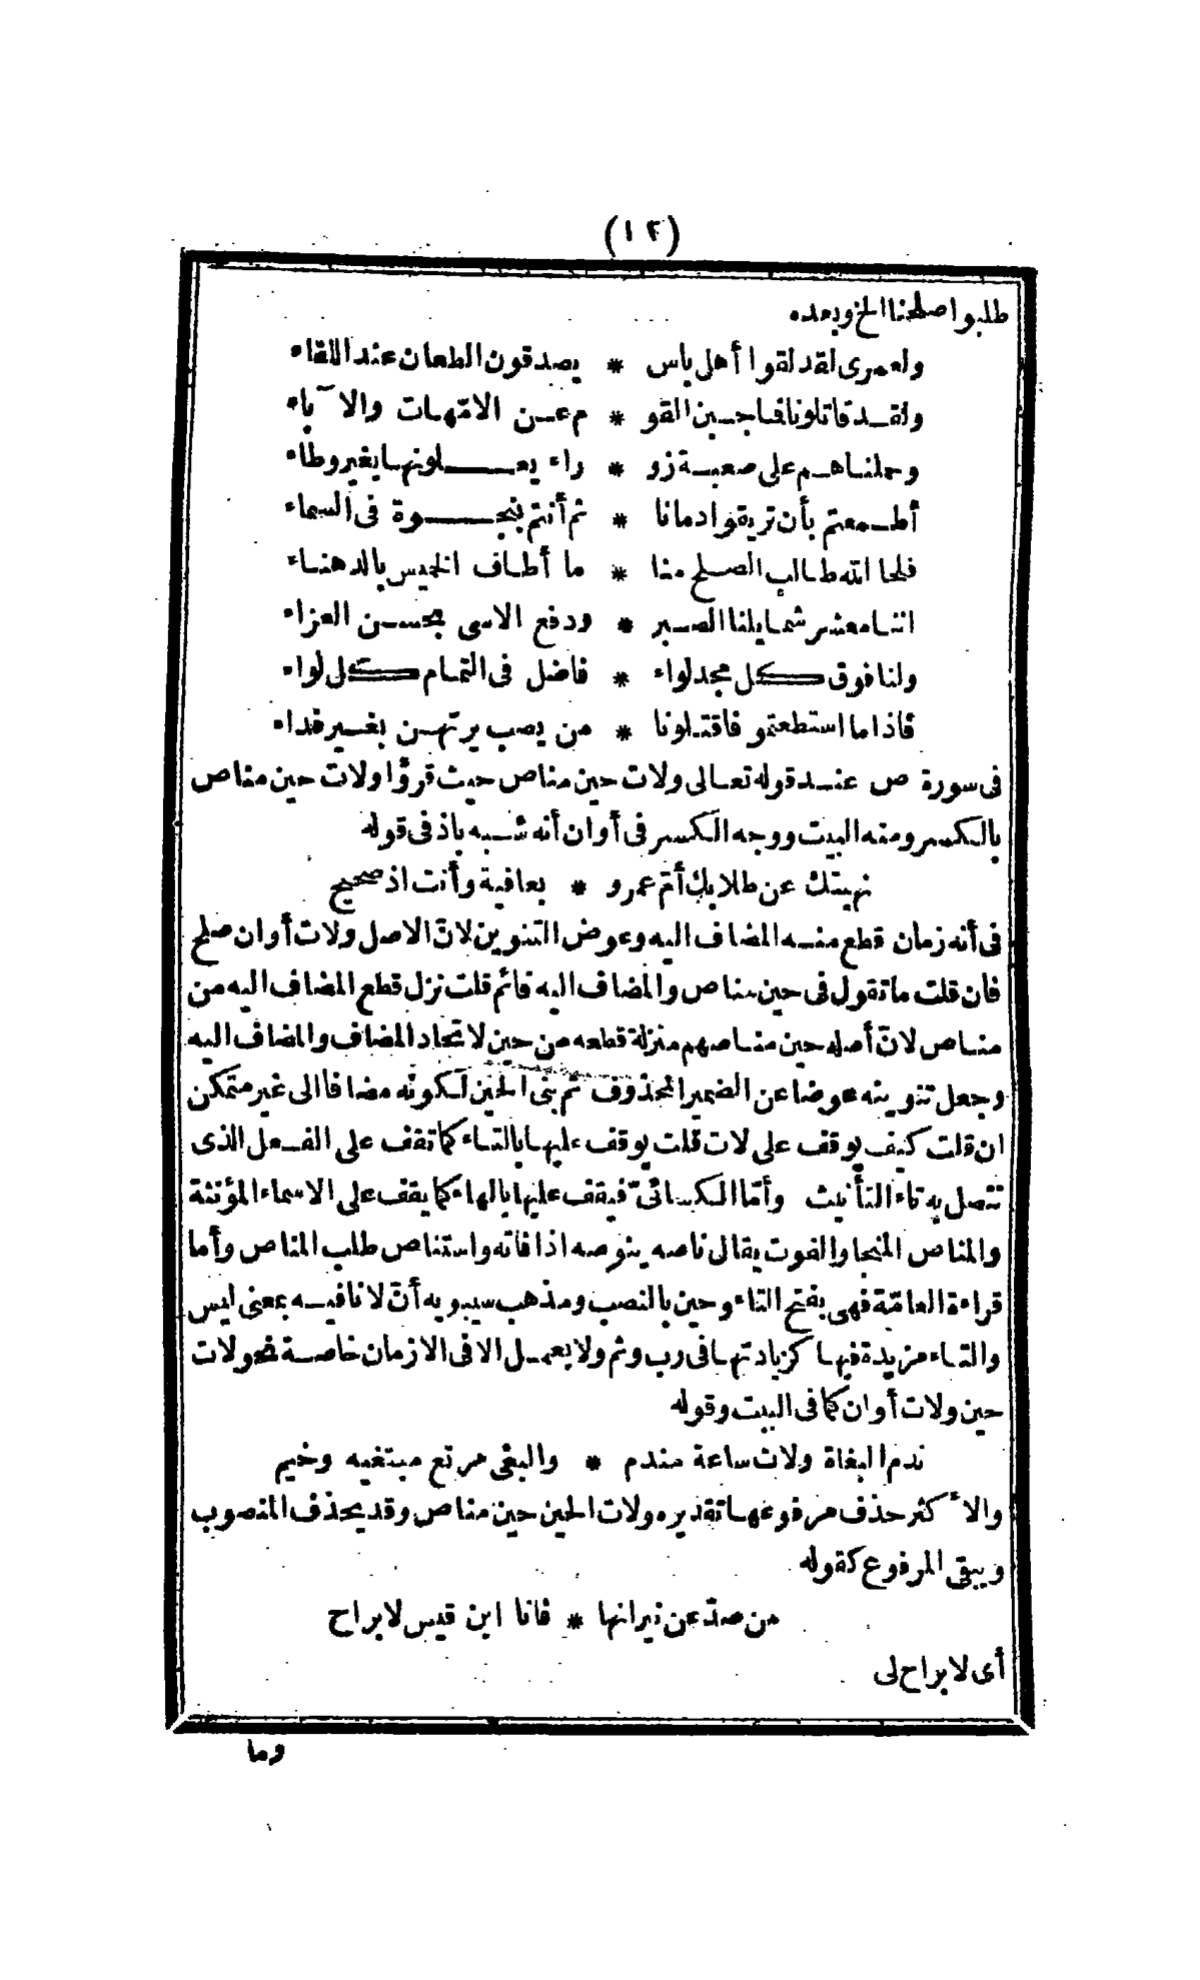 (١٢)
طلبوا صلحنا الخ وبعده
ولعمرى لقد لقوا أهل باس * يصدقون الطعان عند اللقاء
ولقد قاتلونا فما جبن القو * م عن الامّهات والا آباء
وحملناهم على صعبة زو * راء يعلونها بغير وطاء
أطمعتم بأن تريقوا دمانا * ثم أنتم بنجوة فى السماء
فلحا الله طالب الصلح منا * ما أطاف الخميس بالدهناء
اننا معشر شمايلنا الصبر * ودفع الاسى بحسن العزاء
ولنا فوق كل مجد لواء * فاضل فى التمام كل لواء
فاذا ما استطعتمو فاقتلونا * من يصب يرتهن بغير فداء
فى سورة ص عند قوله تعالى ولات حين مناص حيث قرؤا ولات حين مناص
بالكسر ومنه البيت ووجه الكسر فى أوان أنه شبه باذ فى قوله
نهيتك عن طلابك أمّ عمرو * بعافية وأنت اذ صحيح
فى أنه زمان قطع منه المضاف اليه وعوض التنوين لانّ الاصل ولات أوان صلح
فان قلت ما تقول فى حين مناص والمضاف اليه قائم قلت نزل قطع المضاف اليه من
مناص لانّ أصله حين مناصهم منزلة قطعه من حين لاتحاد المضاف والمضاف اليه
وجعل تنوينه عوضا عن الضمير المحذوف ثم بنى الحين لكونه مضافا الى غير متمكن
ان قلت كيف يوقف على لات قلت يوقف عليها بالتاء كما تقف على الفعل الذى
تتصل به تاء التأنيث وأمّا الكسائىّ فيقف عليها بالهاء كما يقف على الاسماء المؤنثة
والمناص المنجا والفوت يقال ناصه ينوصه اذا فاته واستناص طلب المناص وأما
قراءة العامّة فهى بفتح التاء وحين بالنصب ومذهب سيبويه أنّ لا نافيه بمعنى ليس
والتاء مزيدة فيها كزيادتها فى رب وثم ولا يعمل الا فى الازمان خاصة نحو لات
حين ولات أوان كما فى البيت وقوله
ندم البغاة ولات ساعة مندم * والبغى مرتع مبتغيه وخيم
والأ كثر حذف مرفوعها تقديره ولات الحين حين مناص وقد يحذف المنصوب
ويبقى المرفوع كقوله
من صدّ عن نيرانها * فانا ابن قيس لا براح
أى لا براح لى
وما